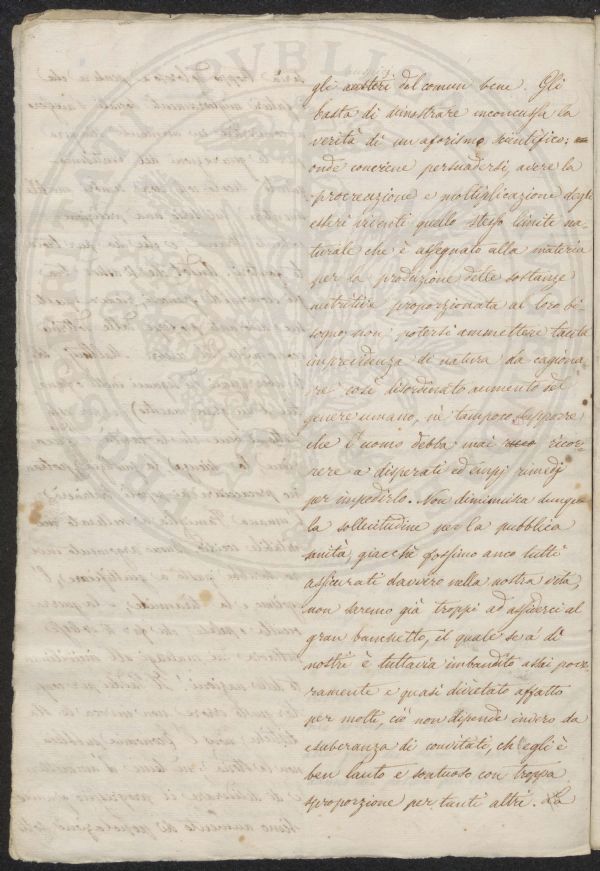 gli austeri del comun bene. Gli
basta di dimostrare inconcussa la
verità di un aforismo scientifico;
onde conviene persuadersi, avere la
procreazione e moltiplicazione degli
esseri viventi quello stesso limite na-
turale che è assegnato alla materia
per la produzione delle sostanze
nutritive proporzionata al loro bi-
sogno, non potersi ammettere tanta
imprevidenza di natura da cagiona-
re così disordinato aumento del
genere umano, nè tampoco supporre
che l'uomo debba mai ricor-
rere a disperati ed empj rimedj
per impedirlo. Non diminuisca dunque
la sollecitudine per la pubblica
sanità, giacchè fossimo anco tutti
assicurati davvero nella nostra vita,
non saremo già troppi ad assiderci al
gran banchetto, il quale se a dì
nostri è tuttavia imbandito assai pove-
ramente e quasi divietato affatto
per molti, ciò non dipende invero da
esuberanza di convitati, ch'egli è
ben lauto e sontuoso con troppa
sproporzione per tanti altri. La